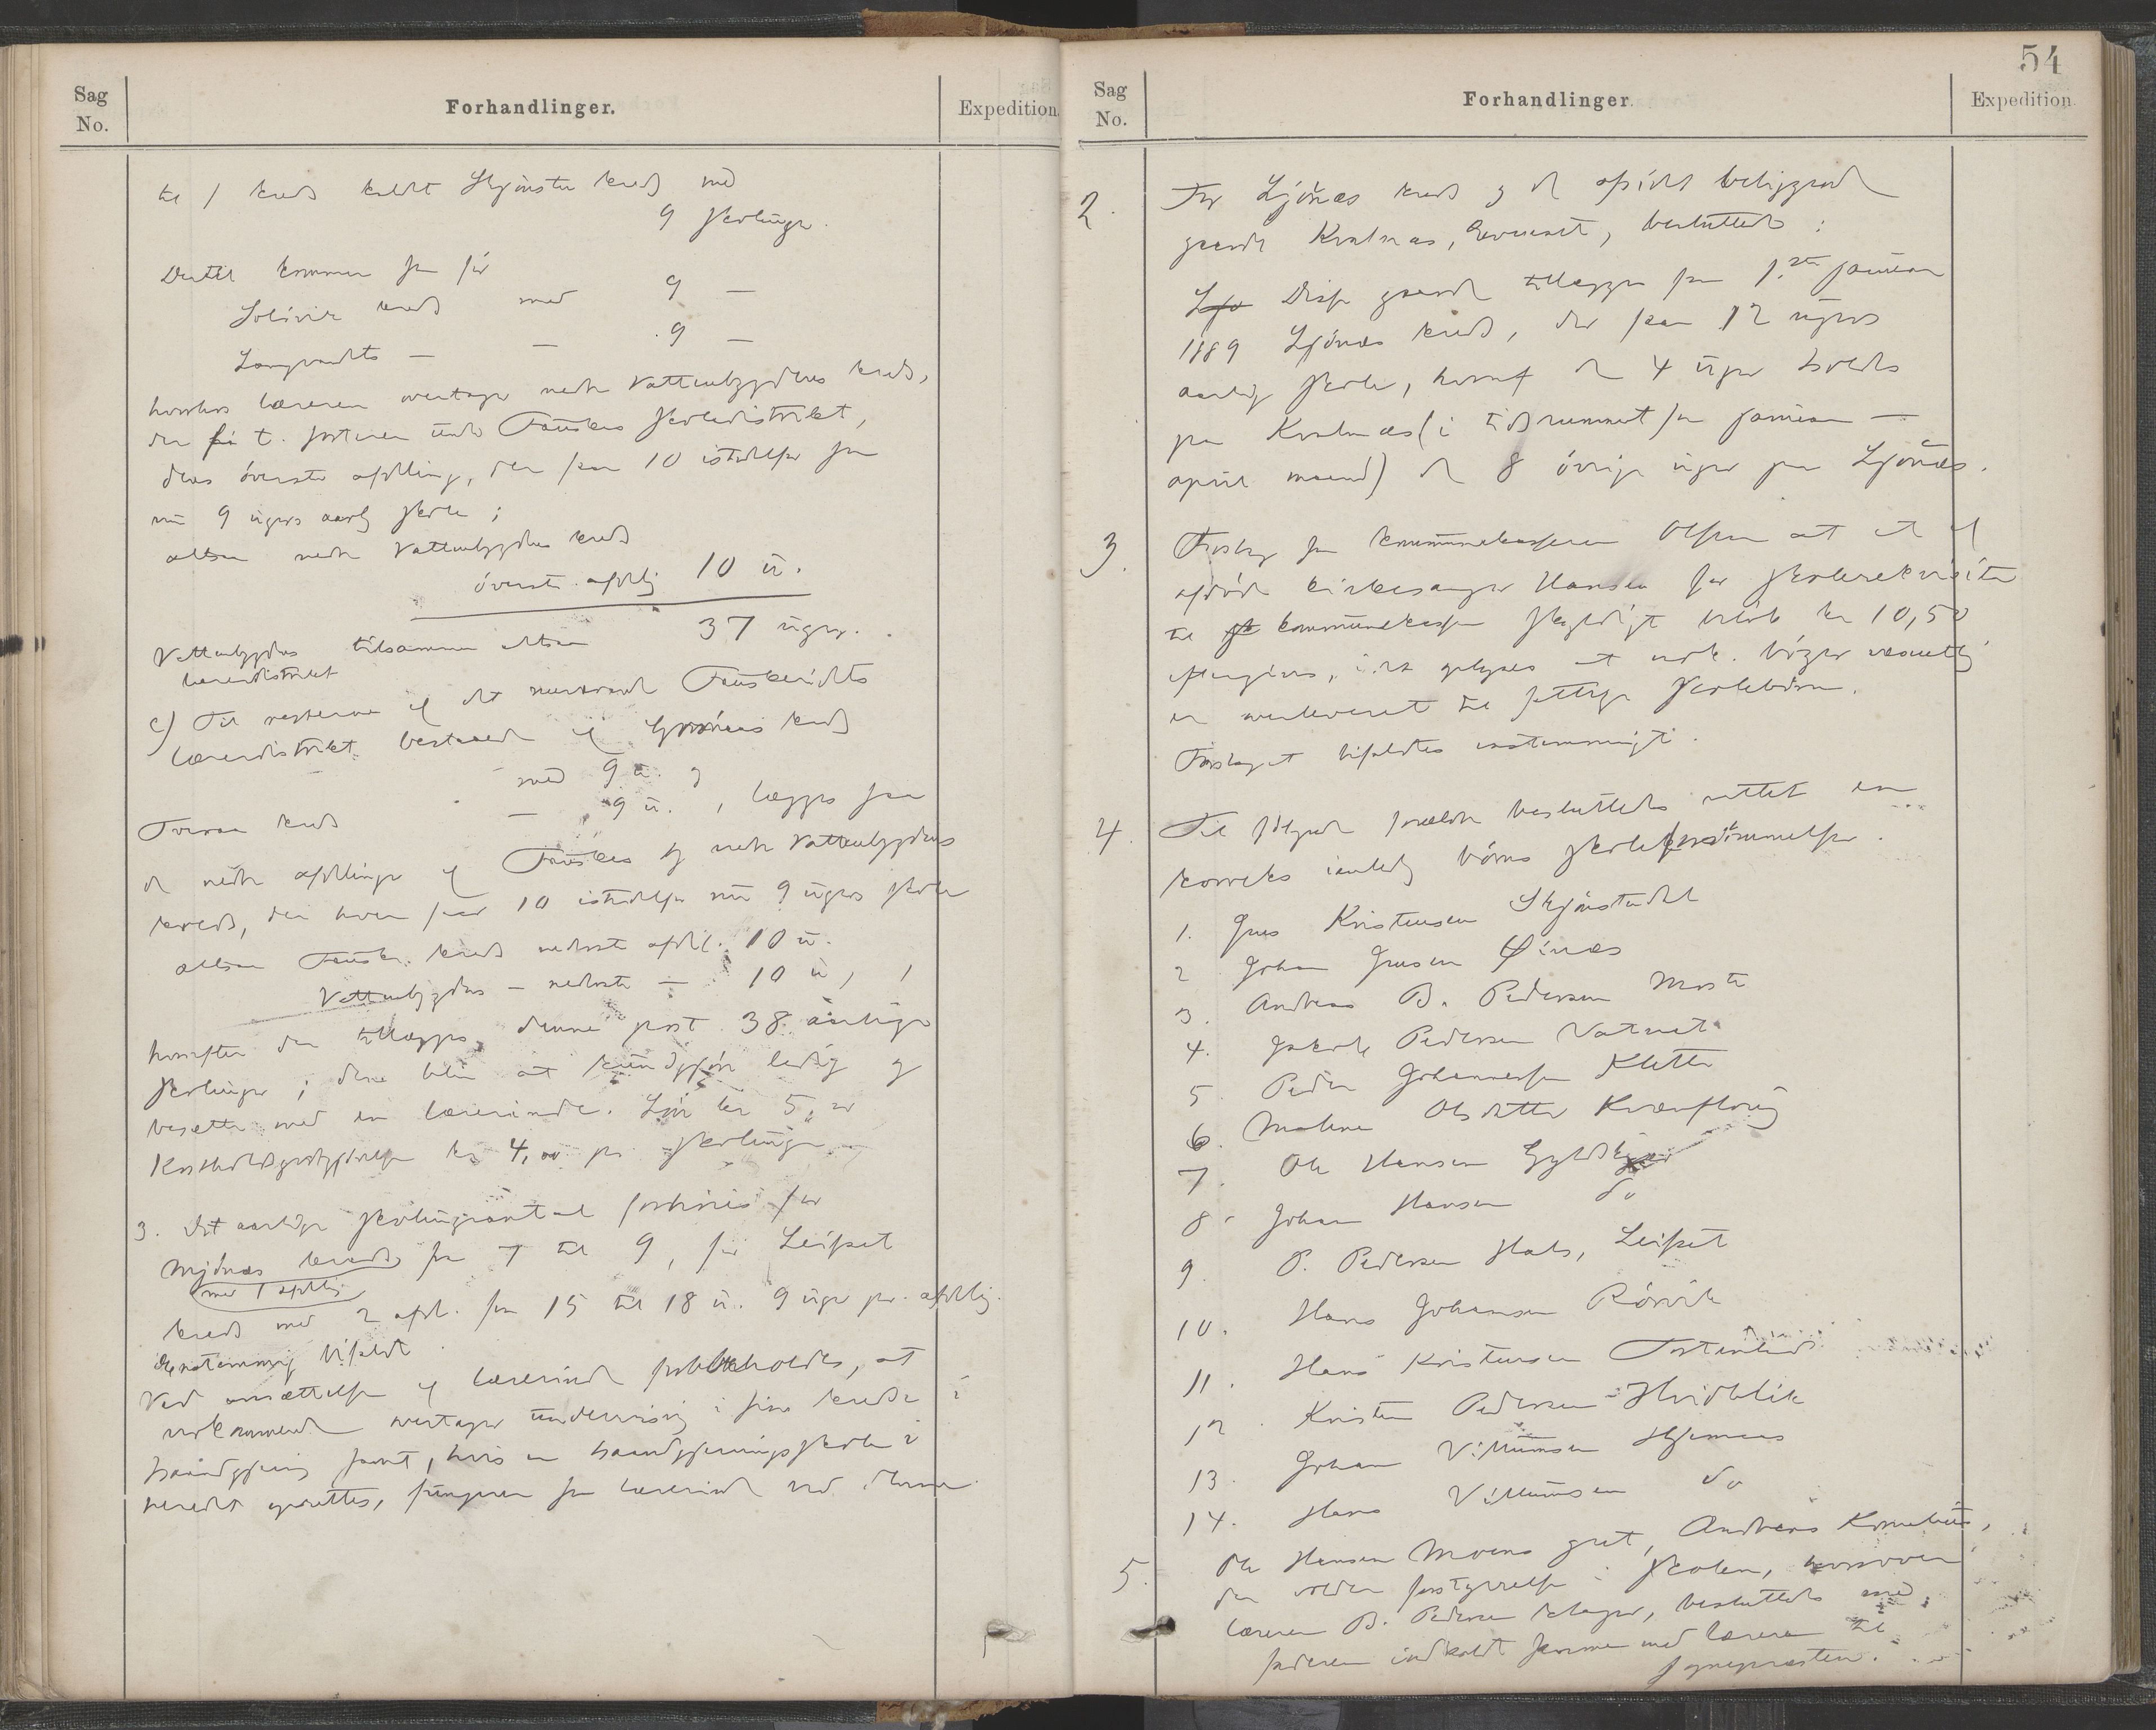 Sag No.
Forhandlinger.
Expedition.
til 1 kreds kaldt Skjönstu kreds med
9 skoleuger.
Dertil kommer som för
Solövik kreds med 9 —
Langvandets — — 9 —
hvorhos læreren overtager nedre Vattenbygdens kreds,
der för t. sorterer under Fauskes skoledistrikt,
dens överste afdeling, der faar 10 istedetfor som
nu 9 ugers aarlig skole;
altsaa nedre Vattenbygdens kreds
överste afdelig 10 u.
Vattenbygdens tilsammen altsaa 37 uger.
lærerdistrikt
c) Til resterne af det nuværende Fauskeidets
lærerdistrikt bestaaende af kreds
med 9 u. og
Tveraa kreds — 9 u., lægges saa
de nedre afdelinger af Fauskes og nedre Vattenbygdens
kreds, der hver faar 10 istedetfor nu 9 ugers skole
altsaa Fauske kreds nederste afdel. 10 u.
Vattenbygdens — nederste — 10 u,
hvorefter der tillægges denne post 38 aarlige
skoleuger; den blir at kundgjöre ledig og
besætte med en lærerinde. Lön kr 5, og
Kostholdsgodtgjörelse kr 4,00 pr. skoleuge
3. Det aarlige skoleugeantal forhöies for
Mjönes kreds fra 7 til 9, for Leifset
med 1 afdelig
kreds med 2 afd. fra 15 til 18 u. 9 uger pr. afdelig.
Enstemmig bifaldt
Ved ansættelse af lærerinde forbeholdes, at
vedkommende overtager undervisnig i sine kredse i
haandgjerning samt, hvis en haandgjerningsskole i
heredet oprettes, fungerer som lærerinde ved denne.
54
Sag No.
Forhandlinger.
Expedition
2. For Ljönæs kreds og de afsides beliggende
gaarde Kvalnæs, besluttedes:
Ljö Disse gaarde tillægges fra 1.ste januar
1889 Ljönæs kreds, der faar 12 ugers
aarlig skole, hvoraf de 4 uger holdes
paa Kvalnæs (i tidsrummet fra januar —
april maaned) de 8 övrige uger paa Ljönæs.
3. Forslag fra kommunekasserer Olsen at et af
afdöde kirkesanger Hansen for skolerekvisiter
til sk kommunekassen skyldigt belöb kr 10,50
eftergives, idet oplyses at vedk. böger væsentlig
er udleveret til fattige skolebörn.
Forslaget bifaldtes enstemmigt.
4. Til fölgende forældre besluttedes rettet en
korreks ianledg börns skoleforsömmelser.
1. Jens Kristensen Skjönstudal
2 Johan Jensen Öinæs
3. Andreas B. Pedersen Moste
4. Jakob Pedersen Vatnet
5 Peder Johannesen Kletten
6. Malena Olsdatter Kvænflaag
7. Ole Hansen
8. Johan Hansen do
9. P. Pedersen Hals, Leifset
10. Hans Johansen Rörvik
11. Hans Kristensen Tortenlid
12. Kristen Pedersen Hvidblik
13. Johan Villumsen Hjemaas
14. Hans Villumsen do
5. Ole Hansen Moens gut, Andreas Kornelius,
der volder forstyrrelse i skolen, hvorover
læreren B. Pedersen klager, besluttedes med
faderen indkaldt sammen med læreren til
sognepresten.